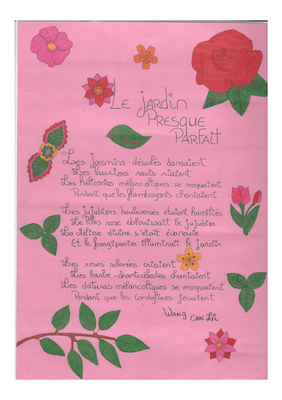 LE JARDIN
PRESQUE
PARFAIT
Les jasmins désolés dansaient
Les lauriers ravis riaient
Les héliconias mélancoliques se moquaient
Pendant que les flamboyants chantaient
Les jujubiers bouleversés étaient humiliés
Le lilas rose éblouissait le jujubier
La mélisse divine s'était évanouie
Et le frangipanier illuminait le jardin
Les roses colorées criaient
Les barbe-chantilestes chantaient
Les daturas mélancoliques se moquaient
Pendant que les Cordylines jouaient
WANG CAN LI